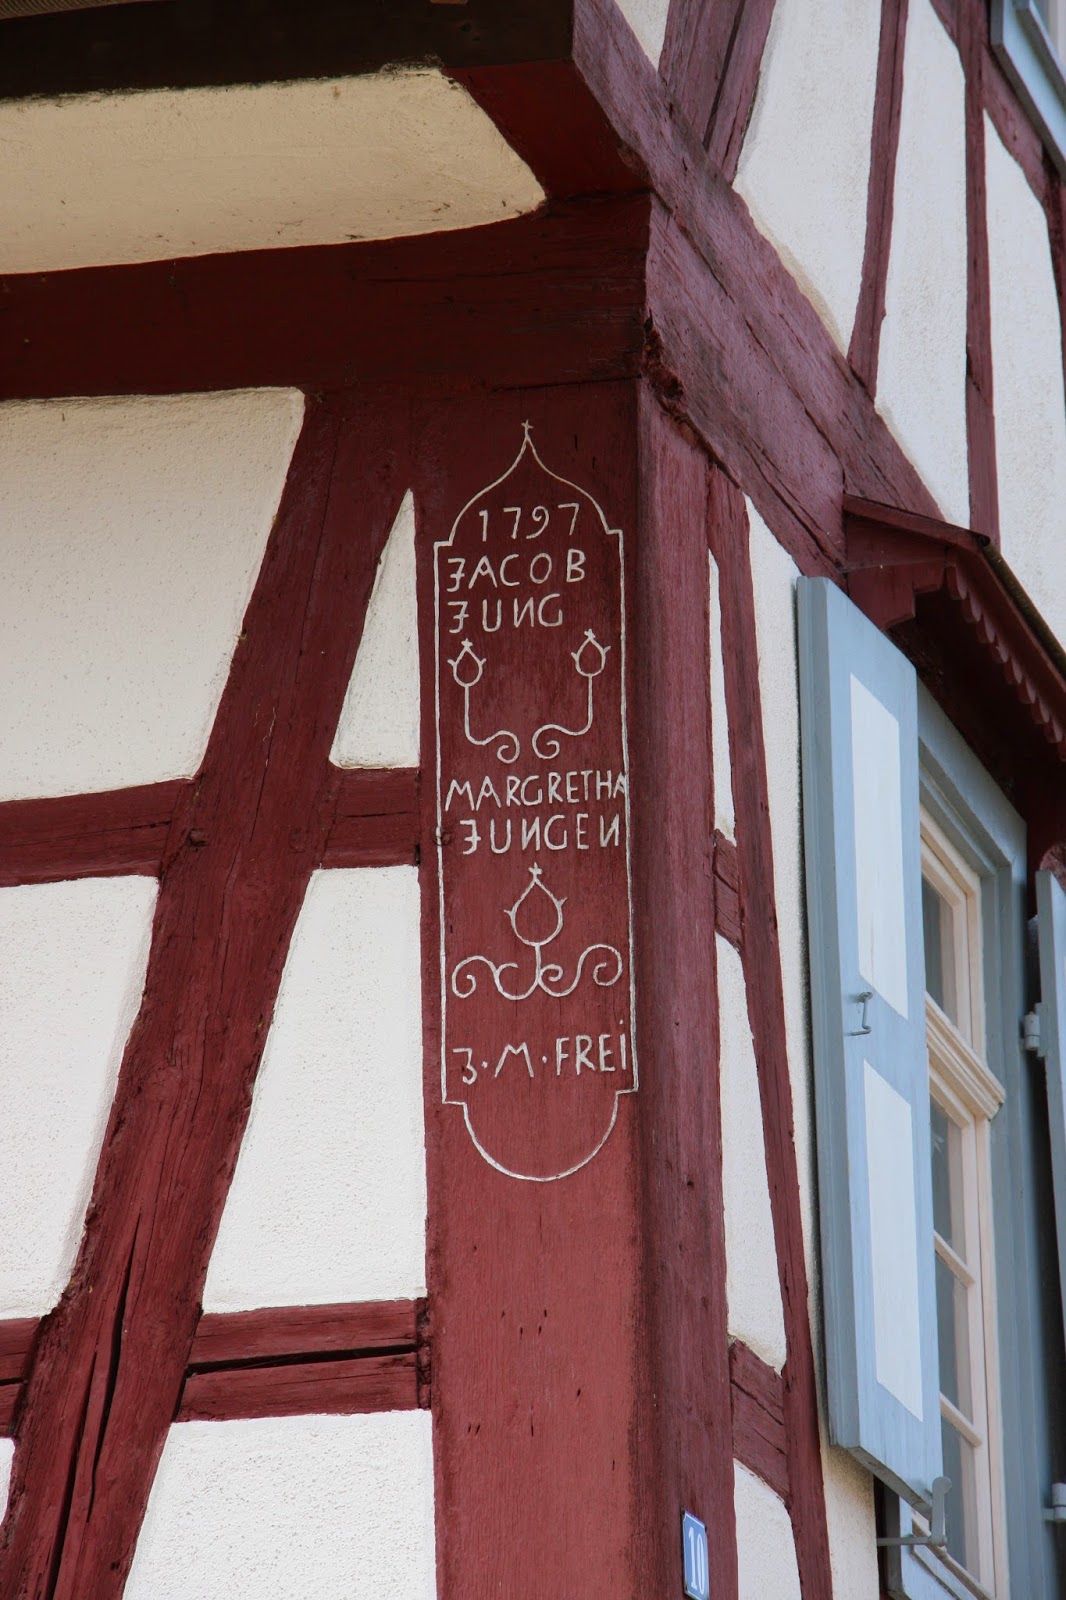 1797
JACOB
JUNG
MARGRETHA
JUNGEN
J·M·FREI
10